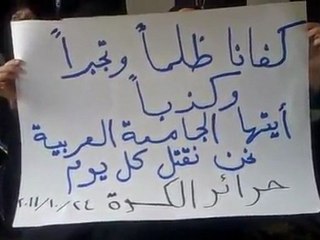 كفانا ظلماً وتجبراً
وكذباً
أيتها الجامعة العربية
نحن نقتل كل يوم
حرائر الكسوة ٢٠١١/١٠/٢٤